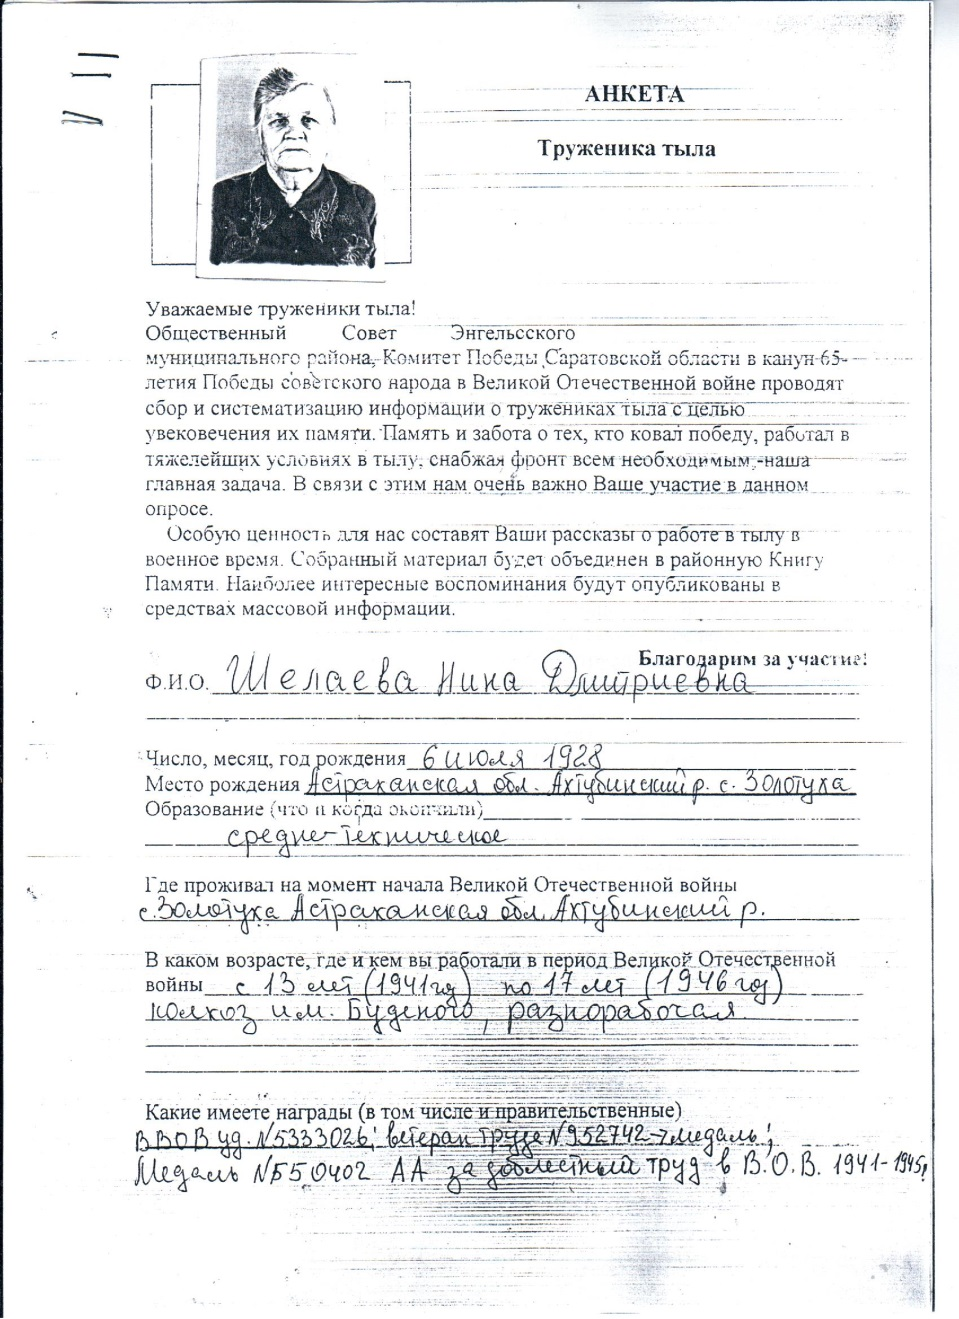 АНКЕТА
Труженика тыла
Уважаемые труженики тыла!
Общественный Совет Энгельсского
муниципального района, Комитет Победы Саратовской области в канун 65-
летия Победы советского народа в Великой Отечественной войне проводят
сбор и систематизацию информации о тружениках тыла с целью
увековечения их памяти. Память и забота о тех, кто ковал победу, работал в
тяжелейших условиях в тылу, снабжая фронт всем необходимым,-наша
главная задача. В связи с этим нам очень важно Ваше участие в данном
опросе.
Особую ценность для нас составят Ваши рассказы о работе в тылу в
военное время. Собранный материал будет объединен в районную Книгу
Памяти. Наиболее интересные воспоминания будут опубликованы в
средствах массовой информации.
Благодарим за участие!
Ф.И.О. Шелаева Нина Дмитриевна
Число, месяц, год рождения 6 июля 1928
Место рождения Астраханская обл. Ахтубинский р. с. Золотуха
Образование (что и когда окончили)
средне-техническое
Где проживал на момент начала Великой Отечественной войны
с. Золотуха Астраханская обл. Ахтубинский р.
В каком возрасте, где и кем вы работали в период Великой Отечественной
войны с 13 лет (1941 год) по 17 лет (1946 год)
колхоз им. Буденого, разнорабочая
Какие имеете награды (в том числе и правительственные)
ВВОВ уд. №5333026; ветеран труда №952742 - медаль;
Медаль №550402 АА за доблестный труд в В.О.В. 1941-1945г